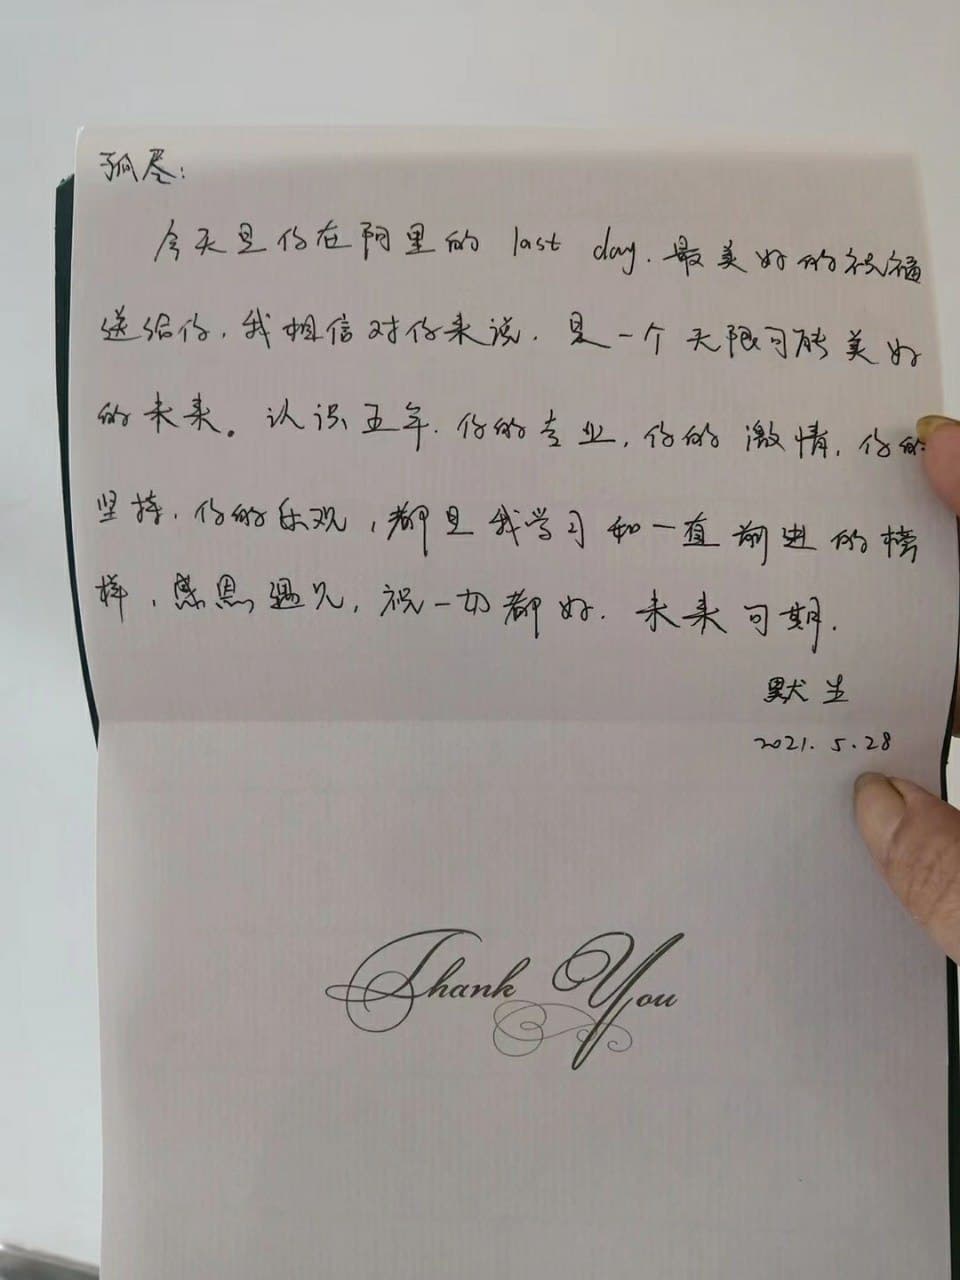 孤尽:
今天是你在阿里的 last day. 最美好的祝福
送给你, 我相信对你来说, 是一个无限可能美好
的未来。认识五年, 你的专业, 你的激情, 你的
坚持, 你的乐观, 都是我学习和一直前进的榜
样, 感恩遇见, 祝一切都好. 未来可期.
默生
2021.5.28
Thank You